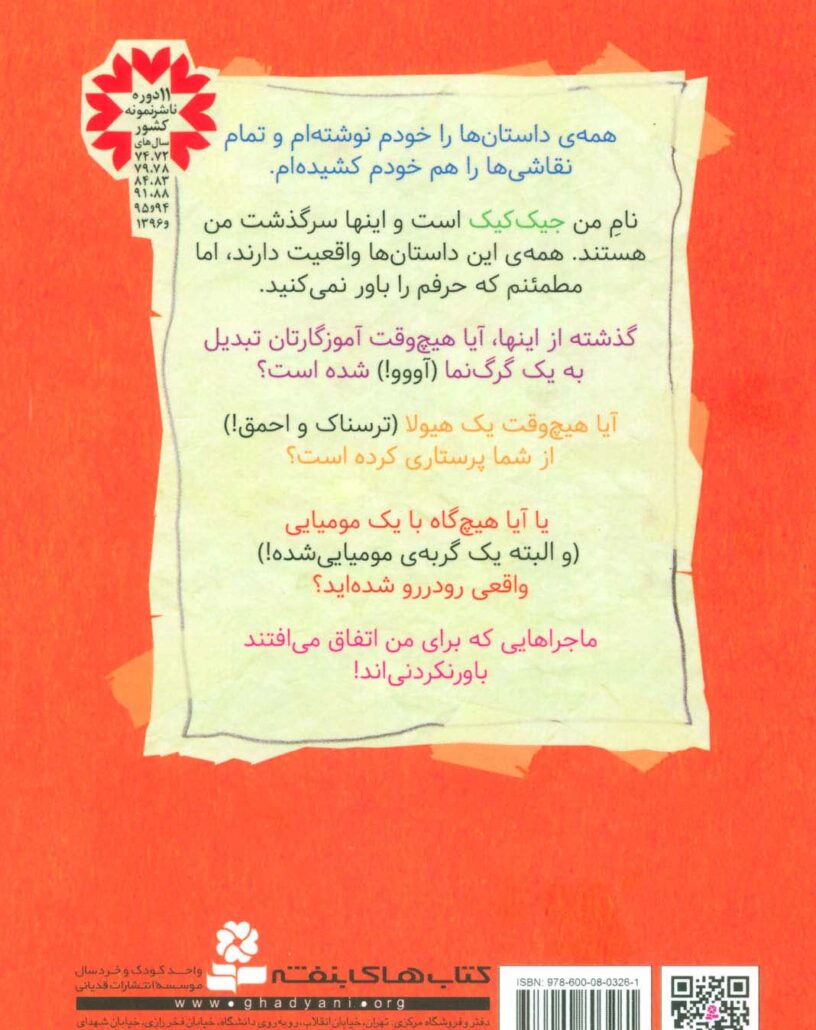 ۱۱دوره
ناشر نمونه
کشور
سال‌های
۷۴،۷۲
۷۹،۷۸
۸۴،۸۳
۹۱،۸۸
۹۴و۹۵
و۱۳۹۶
همه‌ی داستان‌ها را خودم نوشته‌ام و تمام
نقاشی‌ها را هم خودم کشیده‌ام.
نامِ من جیک‌کیک است و اینها سرگذشت من
هستند. همه‌ی این داستان‌ها واقعیت دارند، اما
مطمئنم که حرفم را باور نمی‌کنید.
گذشته از اینها، آیا هیچ‌وقت آموزگارتان تبدیل
به یک گرگ‌نما (آووو!) شده است؟
آیا هیچ‌وقت یک هیولا (ترسناک و احمق!)
از شما پرستاری کرده است؟
یا آیا هیچ‌گاه با یک مومیایی
(و البته یک گربه‌ی مومیایی‌شده!)
واقعی رودررو شده‌اید؟
ماجراهایی که برای من اتفاق می‌افتند
باورنکردنی‌اند!
کتاب‌های بنفشه
واحد کودک و خردسال
موسسه انتشارات قدیانی
www.ghadyani.org
دفتر و فروشگاه مرکزی: تهران، خیابان انقلاب، روبه‌روی دانشگاه، خیابان فخررازی، خیابان شهدای
ISBN: 978-600-08-0326-1